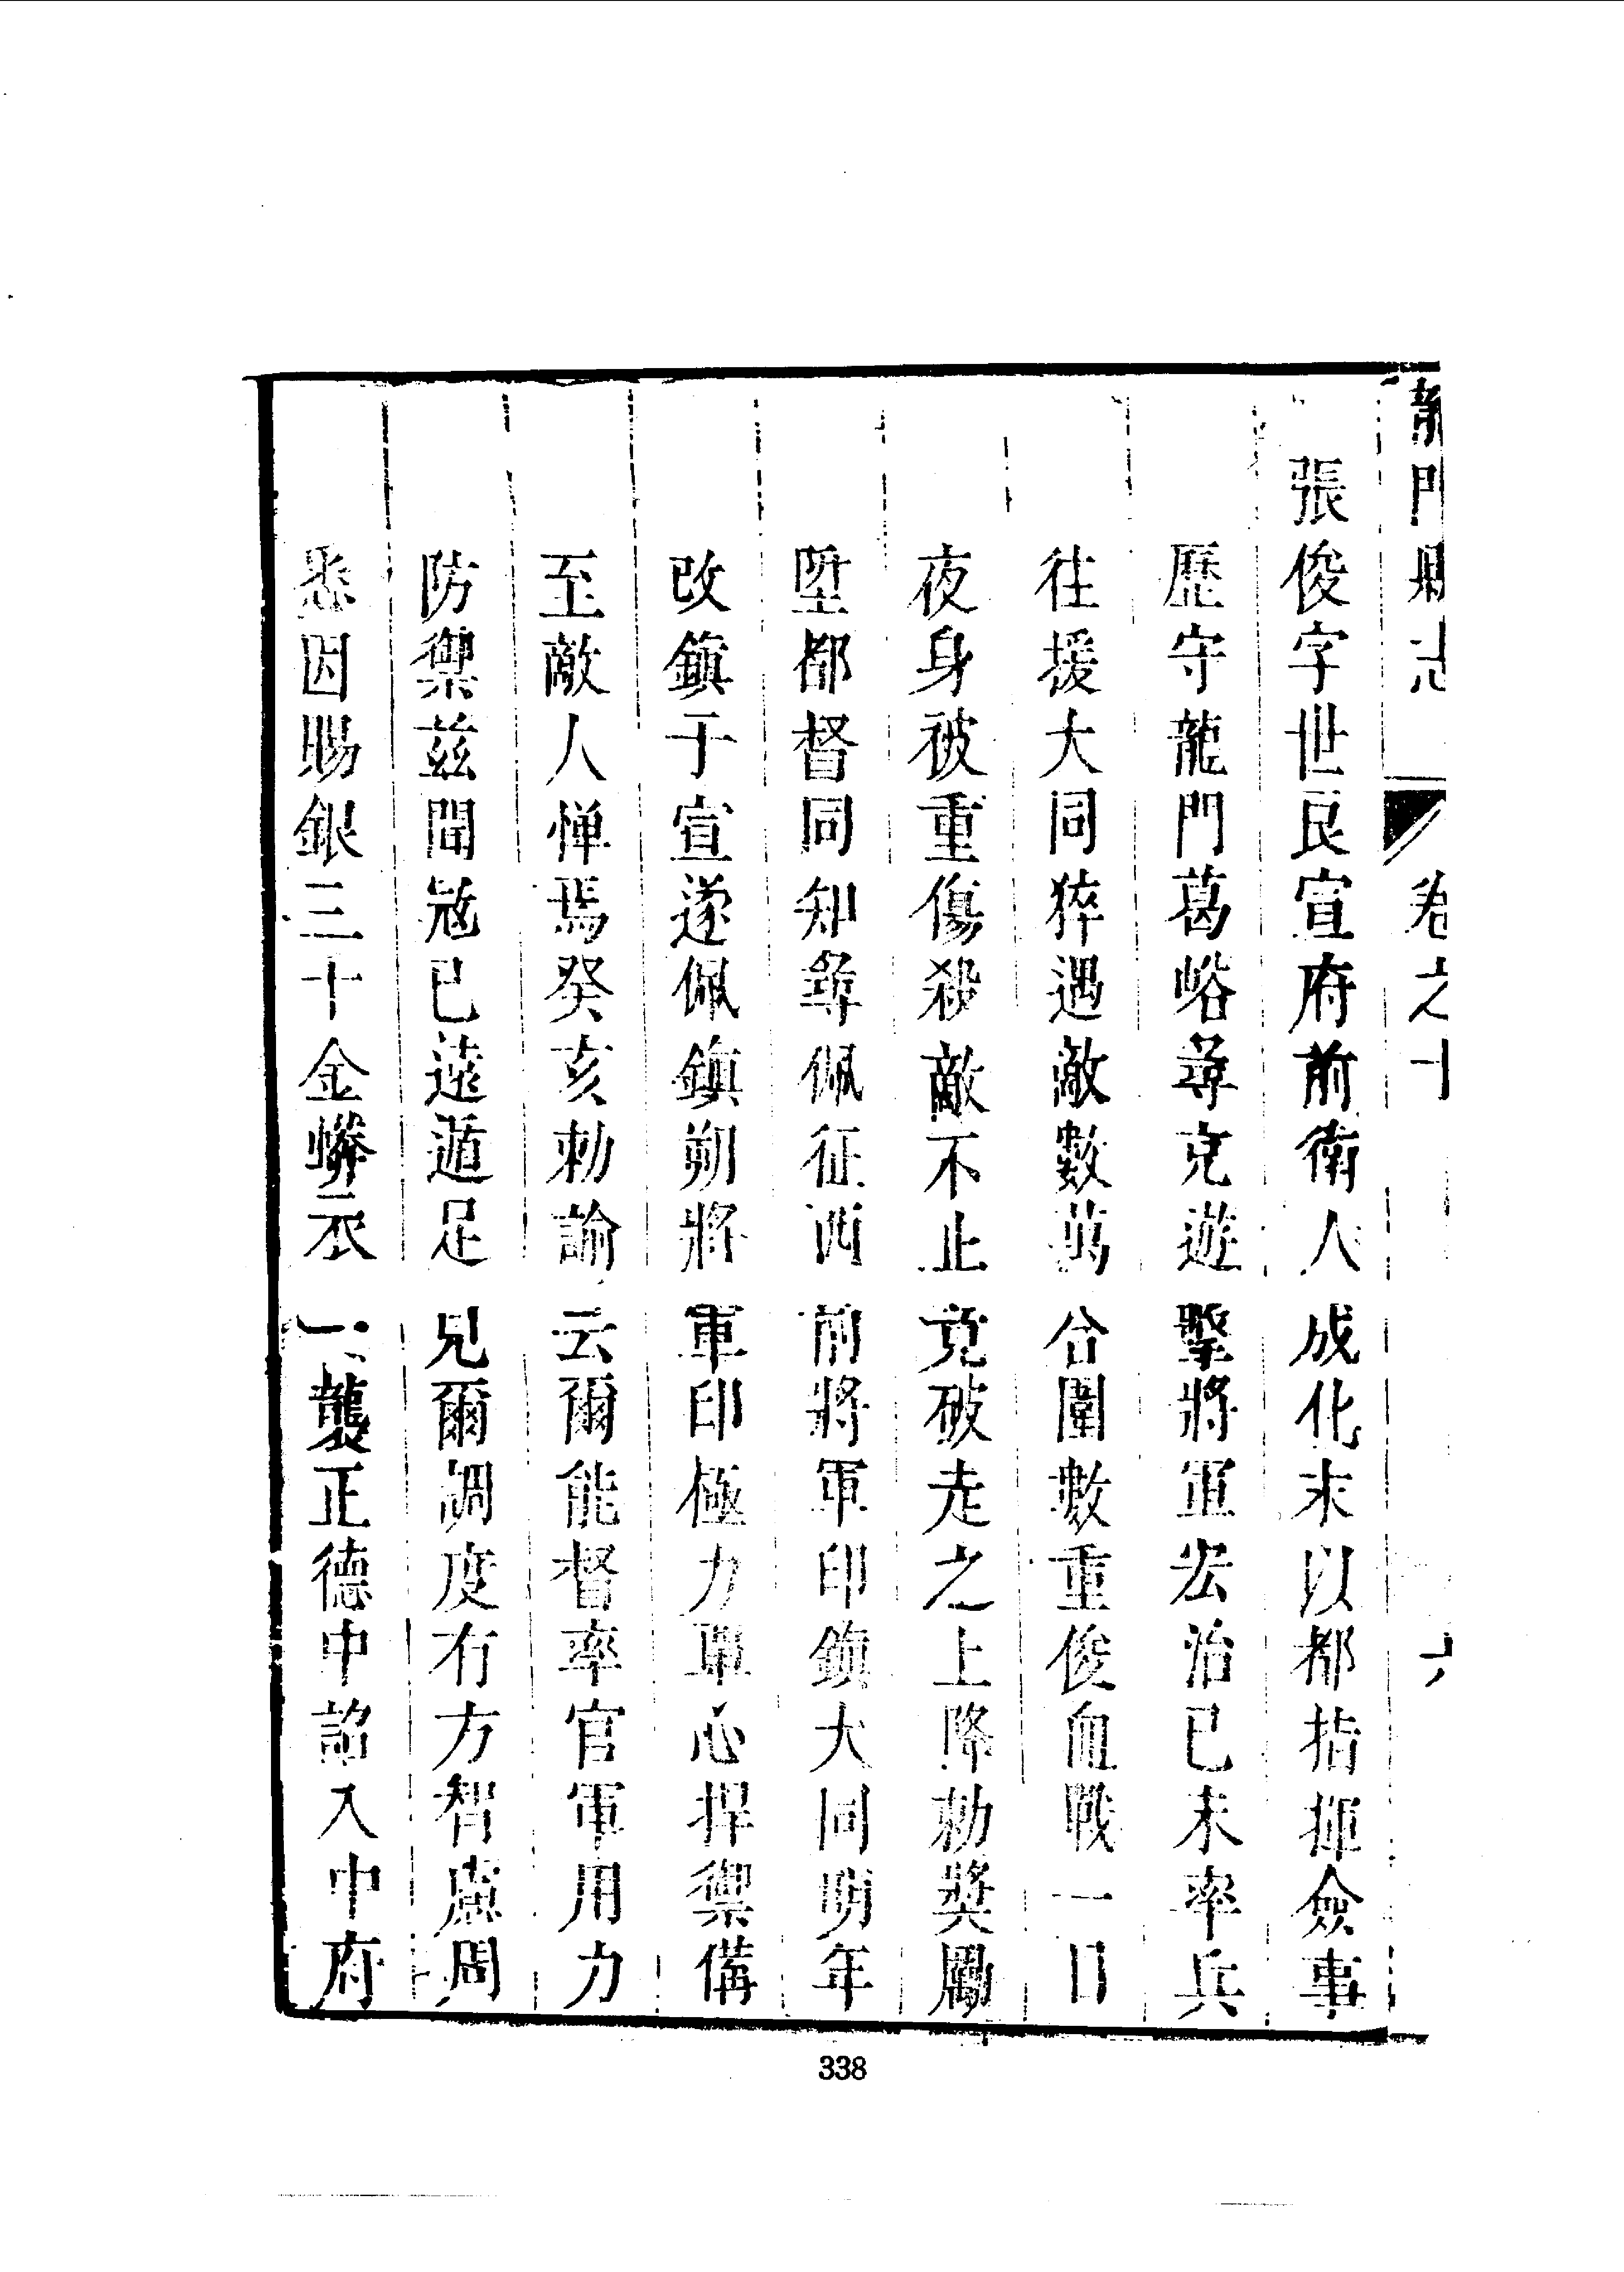 龍門縣志 卷之十 六
張俊字世良宣府前衛人成化末以都指揮僉事
歷守龍門葛峪尋充遊擊將軍宏治已未率兵
往援大同猝遇敵數萬合圍數重俊血戰一日
夜身被重傷殺敵不止竟破走之上降勅獎勵
陞都督同知尋佩征西前將軍印鎮大同明年
改鎮于宣遂佩鎮朔將軍印極力單心捍禦備
至敵人憚焉癸亥勅諭云爾能督率官軍用力
防禦茲聞冦已遠遁足見爾調度有方智慮周
悉因賜銀三十金蟒衣一襲正德中詔入中府
338